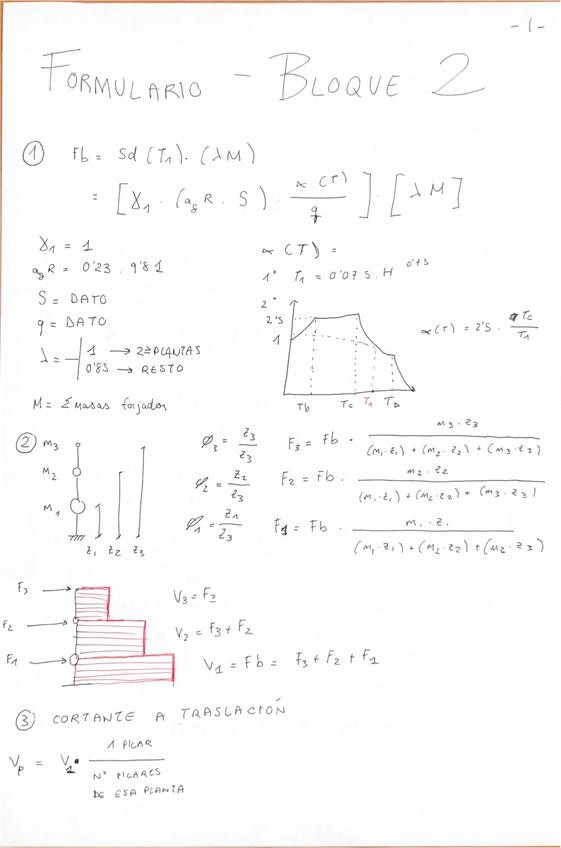 -1-
FORMULARIO - BLOQUE 2
① Fb = Sd (T1) · (λM)
= [γ1 · (agR · S) · α(T) / q] · [λM]
γ1 = 1
agR = 0'23 . 9'81
S = DATO
q = DATO
λ = 1 → 2 PLANTAS
0'85 → RESTO
M = Σ masas forjados
α(T) =
1° T1 = 0'075 . H^0'75
2°
2'5
1
Tb Tc T1 TD
α(T) = 2'5 · Tc / T1
② M3
M2
M1
z1 z2 z3
φ3 = z3 / z3
φ2 = z2 / z3
φ1 = z1 / z3
F3 = Fb · m3 · z3 / (m1 · z1) + (m2 · z2) + (m3 · z3)
F2 = Fb · m2 · z2 / (m1 · z1) + (m2 · z2) + (m3 · z3)
F1 = Fb · m1 · z1 / (m1 · z1) + (m2 · z2) + (m3 · z3)
F3
F2
F1
V3 = F3
V2 = F3 + F2
V1 = Fb = F3 + F2 + F1
③ CORTANTE A TRASLACIÓN
Vp = V1 · 1 PILAR / Nº PILARES
DE ESA PLANTA